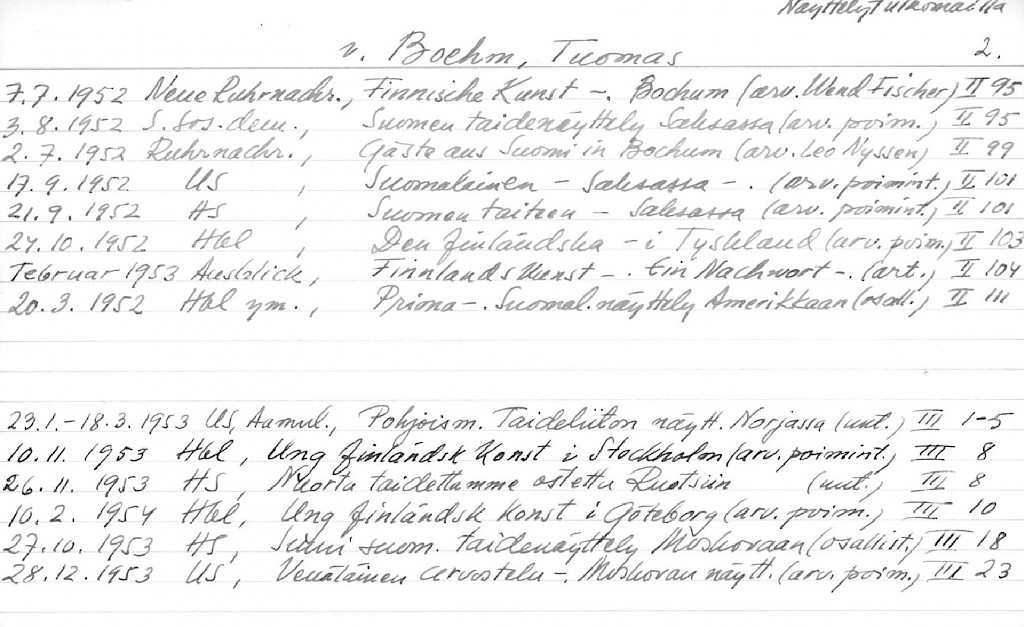 Näyttelyt ulkomailla
v. Boehm, Tuomas 2.
7.7.1952 Neue Ruhrnachr., Finnische Kunst -. Bochum (arv. Wend Fischer) II 95
3.8.1952 S. Sos. dem., Suomen taidenäyttely Saksassa (arv. poim.) II 95
2.7.1952 Ruhrnachr., Gäste aus Suomi in Bochum (arv. Leo Nyssen) II 99
17.9.1952 US, Suomalainen - Saksassa -. (arv. poimint.) II 101
21.9.1952 HS, Suomen taiteen - Saksassa (arv. poimint.) II 101
24.10.1952 Hbl, Den finländska - i Tyskland (arv. poim.) II 103
Februar 1953 Ausblick, Finnlands Kunst -. Ein Nachwort -. (art.) II 104
20.3.1952 Hbl ym., Priona -. Suomal. näyttely Amerikkaan (osall.) II 111
23.1.-18.3.1953 US, Aamul., Pohjoism. Taideliiton näytt. Norjassa (uut.) III 1-5
10.11.1953 Hbl, Ung finländsk Konst i Stockholm (arv. poimint.) III 8
26.11.1953 HS, Nuorta taidettamme ostettu Ruotsiin (uut.) III 8
10.2.1954 Hbl, Ung finländsk Konst i Göteborg (arv. poim.) III 10
27.10.1953 HS, Suuri suom. taidenäyttely Moskovaan (osallist.) III 18
28.12.1953 US, Venäläinen arvostelu -. Moskovan näytt. (arv. poim.) III 23